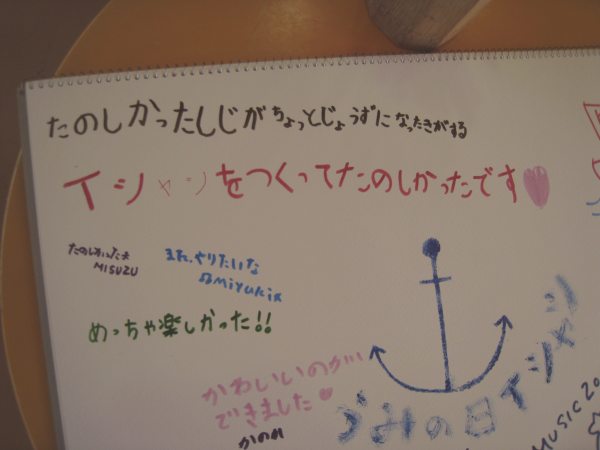 たのしかったしじがちょっとじょうずになったきがする
イシャシをつくってたのしかったです
たのしかった
MISUZU
また、やりたいな
MiYUKi
めっちゃ楽しかった!!
かわいいのが
できました
かのん
うみの日イシャシ
MUSIC